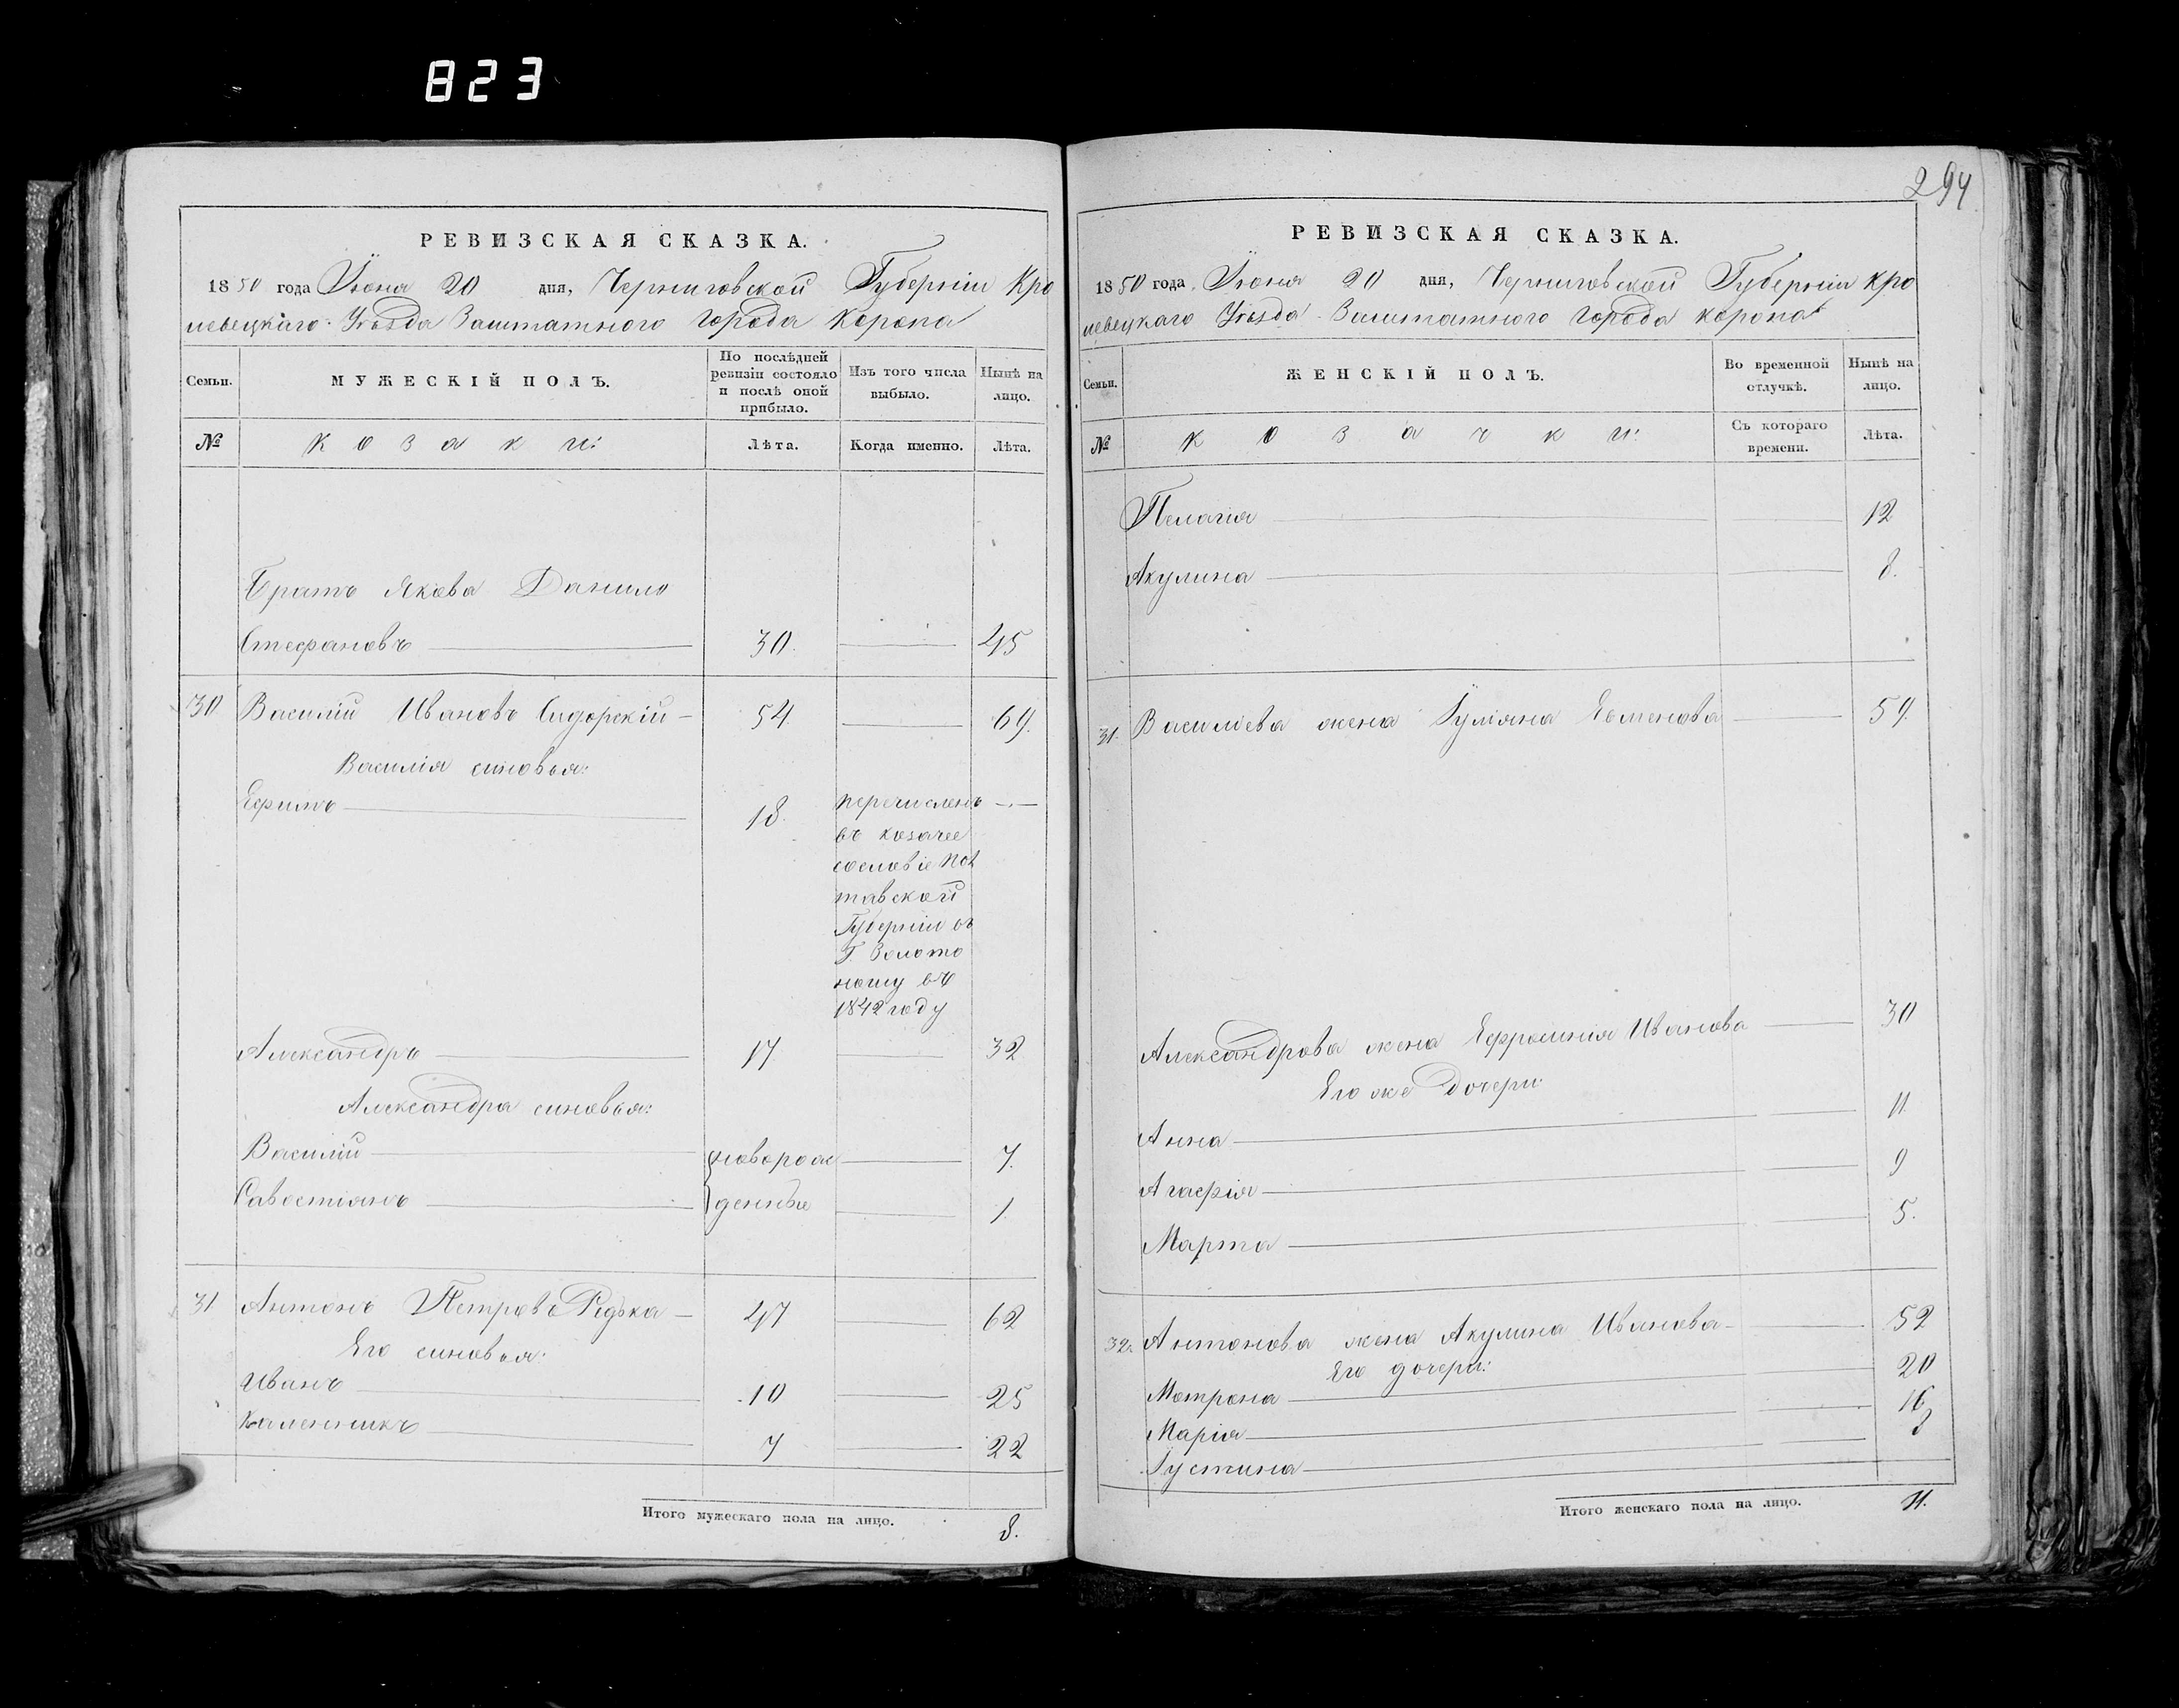 823
РЕВИЗСКАЯ СКАЗКА.
1850 года Іюня 20 дня, Черниговской Губерніи Кро
левецкаго Уѣзда Заштатного города Коропа
Семьи.
МУЖЕСКІЙ ПОЛЪ.
По послѣдней ревизіи состояло и послѣ оной прибыло.
Изъ того числа выбыло.
Нынѣ на лицо.
№
Козаки:
Лѣта.
Когда именно.
Лѣта.
Братъ Якова Данило
Стефановъ 30. 45
30 Василій Ивановъ Сидорскій 54 69.
Василія синовья:
Ефимъ 18. перечисленъ
въ козачее
сословіе Пол
тавской
Губерніи въ
Г. Золото
ношу въ
1842 году
Александръ 17 32
Александра синовья:
Василій новорож 7.
Савостіянъ денные 1
31 Антонъ Петровъ Редька 47 62
Его синовья:
Иванъ 10 25
Каленникъ 7 22
Итого мужескаго пола на лицо. 8.
294
РЕВИЗСКАЯ СКАЗКА.
1850 года Іюня 20 дня, Черниговской Губерніи Кро
левецкаго Уѣзда Заштатного города Коропа
Семьи.
ЖЕНСКІЙ ПОЛЪ.
Во временной отлучкѣ.
Нынѣ на лицо.
№
Козачки:
Съ котораго времени.
Лѣта.
Пелагія 12
Акулина 8.
31. Василіева жена Іуліяна Евменова 59.
Александрова жена Ефросинія Иванова 30
Его же дочери:
Анна 11.
Агафія 9
Марта 5.
32. Антонова жена Акулина Иванова 52
Его дочери:
Мотрона 20
Марія 16
Іустина 8
Итого женскаго пола на лицо. 11.